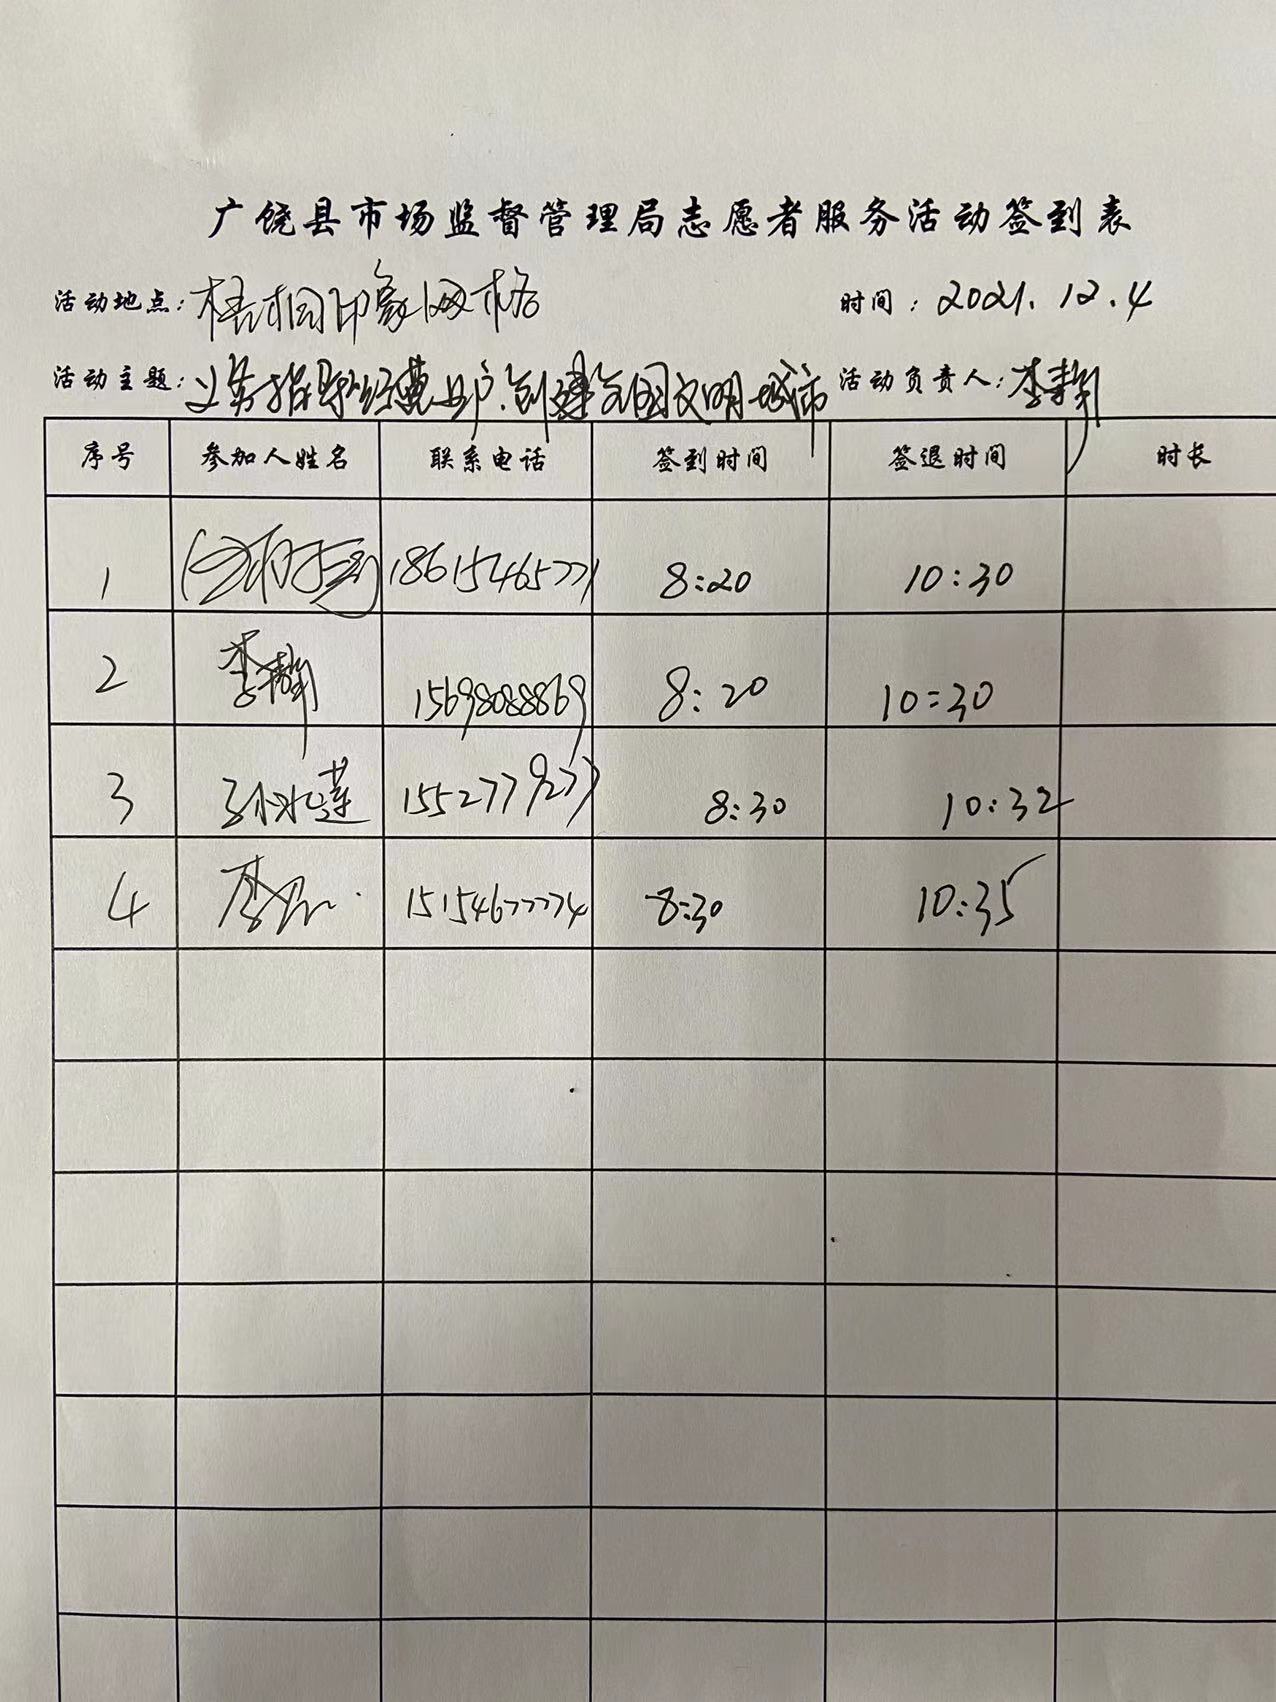 广饶县市场监督管理局志愿者服务活动签到表
活动地点：梧桐印象网格 时间：2021.12.4
活动主题：义务指导经营业户.创建全国文明城市 活动负责人：李静
序号 参加人姓名 联系电话 签到时间 签退时间 时长
1 18615465771 8:20 10:30
2 李静 15698088869 8:20 10:30
3 孙冰莲 15527779277 8:30 10:32
4 李 15154677774 8:30 10:35